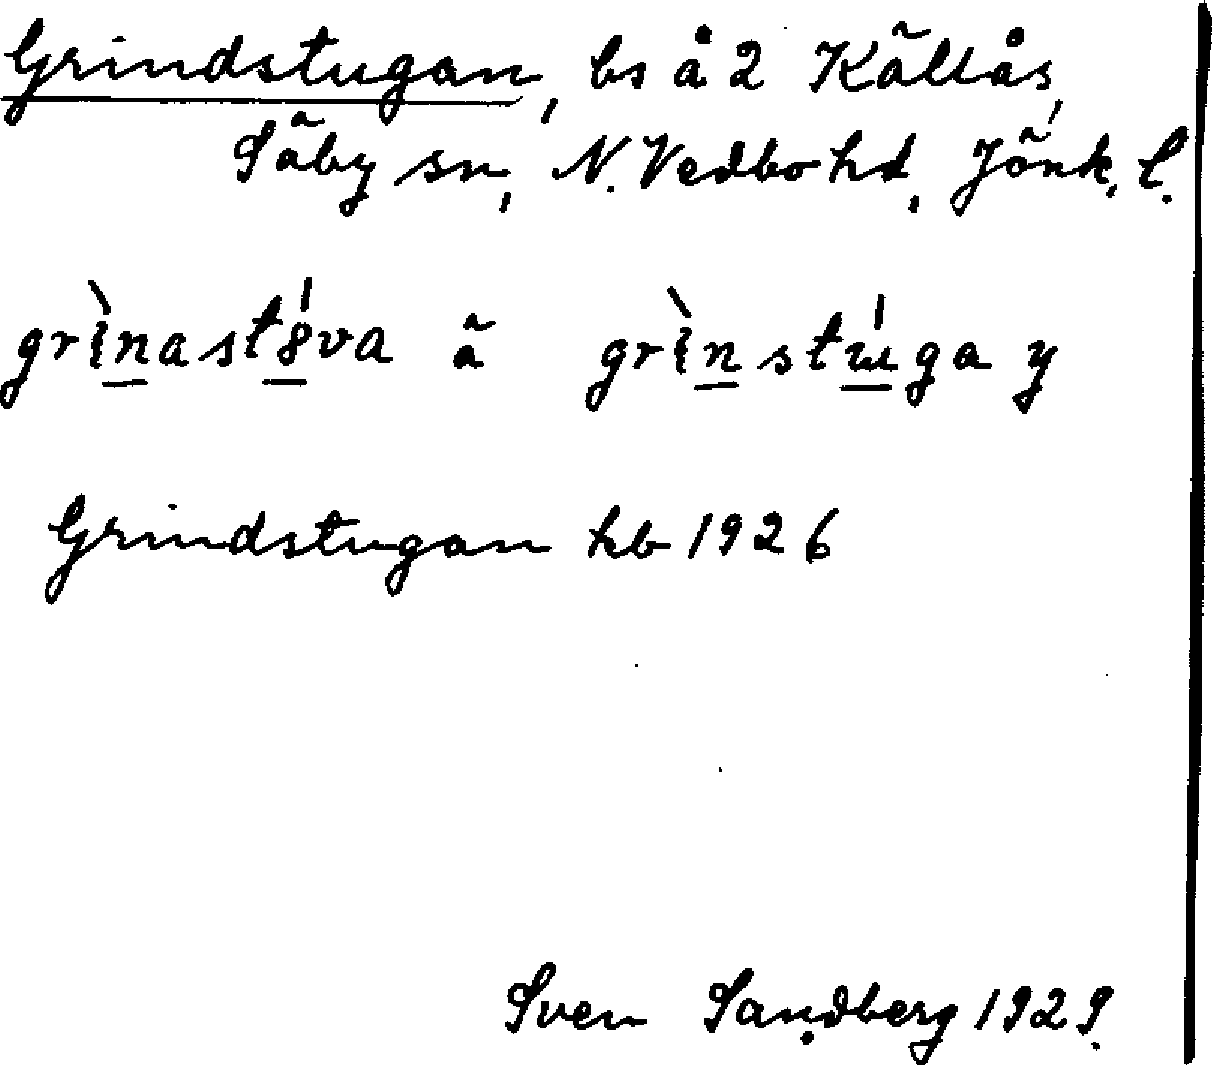 Grindstugan, bs å 2 Källås,
Säby sn, N. Vedbo hd, Jönk. l.
grìnast8́va ä grìnstúga y
Grindstugan hb 1926
Sven Sandberg 1929.